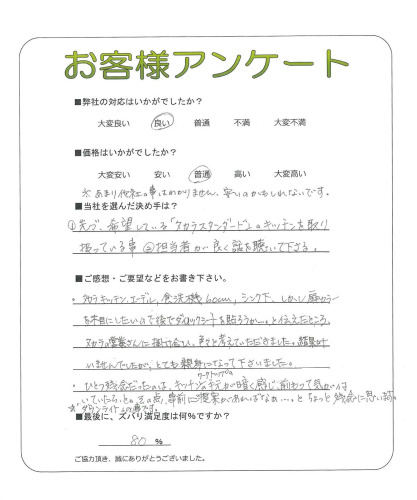 お客様アンケート
■弊社の対応はいかがでしたか？
大変良い 良い 普通 不満 大変不満
■価格はいかがでしたか？
大変安い 安い 普通 高い 大変高い
※あまり他社の事はわかりません、安いのかもしれないです。
■当社を選んだ決め手は？
①先づ、希望している「タカラスタンダード」のキッチンを取り
扱っている事 ②担当者が良く話を聴いて下さる。
■ご感想・ご要望などをお書き下さい。
・タカラキッチン、エーデル、食洗機60cm、シンク下、しかし扉カラー
を木目にしたいので後でダイノックシートを貼ろうか…。と伝えたところ、
タカラの営業さんに掛け合い、色々と考えていただきました。結果
いませんでしたが、とても親身になって下さいました。
・ひとつ残念だったのは、キッチンの手元が暗く感じ、前もって気が付
ワークトップの
いていたら、と。その点、事前に提案があればなぁ…。とちょっと残念に思います。
※ダウンライトの事です。
■最後に、ズバリ満足度は何％ですか？
80 %
ご協力頂き、誠にありがとうございました。